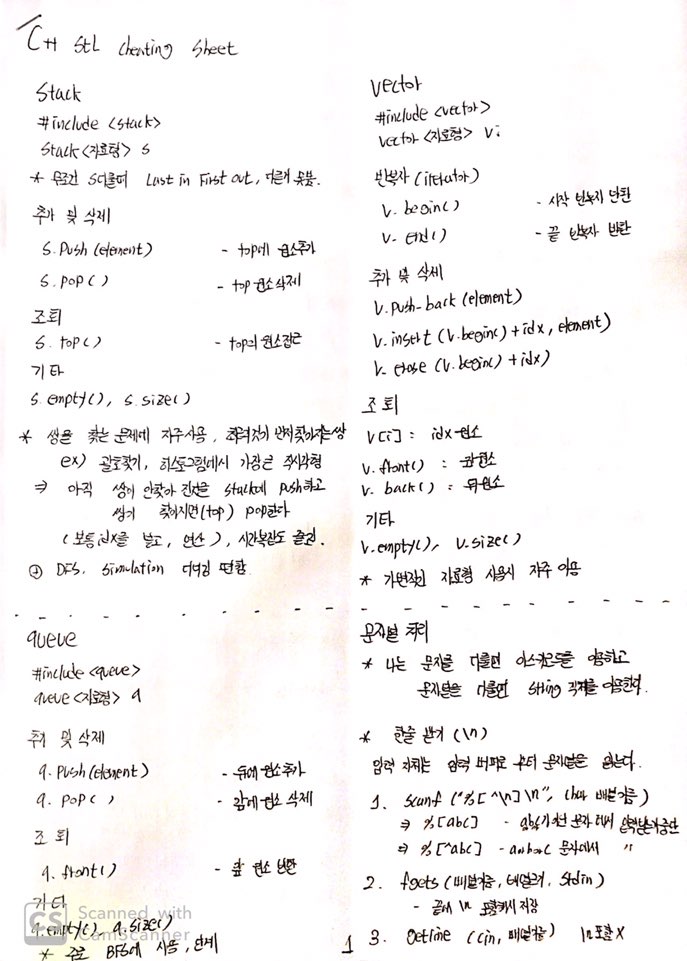 C++ STL cheating sheet
Stack
#include <stack>
Stack<자료형> s
* 무조건 Last in First out,
추가 및 삭제
s.push(element) - top에 원소추가
s.pop() - top 원소 삭제
조회
s.top() - top의 원소접근
기타
s.empty(), s.size()
* 쌍을 찾는 문제에 자주사용,
ex) 괄호찾기, 히스토그램에서 가장큰 직사각형
⇒ 아직 쌍이 안찾아 진것을 stack에 push하고
쌍이 찾아지면(top) pop한다
(보통 idx를 넣고, 연산), 시간복잡도 줄임.
⊕ DFS, simulation
queue
#include <queue>
queue<자료형> q
추가 및 삭제
q.push(element) - 뒤에 원소추가
q.pop() - 앞에 원소 삭제
조회
q.front() - 앞 원소 반환
기타
q.empty() q.size()
* 주로 BFS에 사용,
Vector
#include <vector>
vector<자료형> v;
반복자(iterator)
v.begin() - 시작 반복자 반환
v.end() - 끝 반복자 반환
추가 및 삭제
v.push-back(element)
v.insert(v.begin()+idx, element)
v.erase(v.begin()+idx)
조회
v[i] : idx 원소
v.front() : 앞원소
v.back() : 뒤원소
기타
v.empty(), v.size()
* 가변적인 자료형 사용시 자주 이용
문자열 처리
* 나는 문자를 다룰땐 아스키코드를 이용하고
문자열을 다룰땐 string 객체를 이용한다.
* 한줄 받기 (\n)
입력 자체는 입력 버퍼로 부터 문자열을 읽는다.
1. scanf("%[^\n]\n", char 배열이름)
⇒ %[abc] - 문자
⇒ %[^abc] - 문자에서 "
2. fgets(배열이름, 배열크기, stdin)
- 끝에 \n 포함해서 저장
3. getline(cin, 배열이름) \n포함 X
1
CS Scanned with
CamScanner